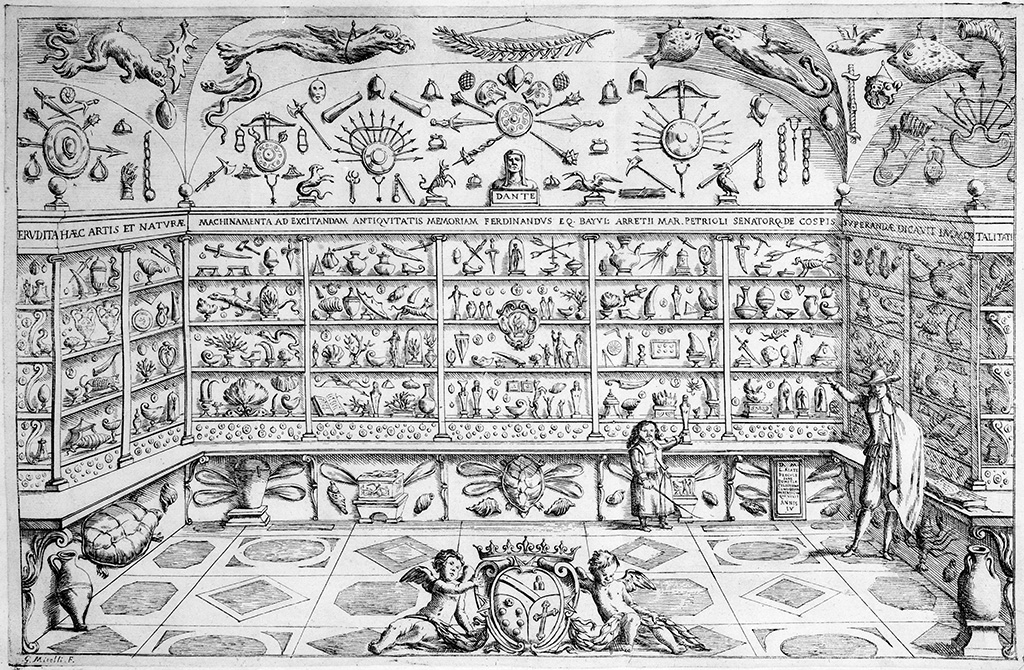 DANTE
ERVDITA HÆC ARTIS ET NATVRÆ MACHINAMENTA AD EXCITANDAM ANTIQVITATIS MEMORIAM FERDINANDVS EQ. BAYVL: ARRETII MAR. PETRIOLI SENATORQ DE COSPIS SVPERANDÆ DICAVIT IMMORTALITATI
D. M.
ANNIS
IV
G. Mitelli. F.